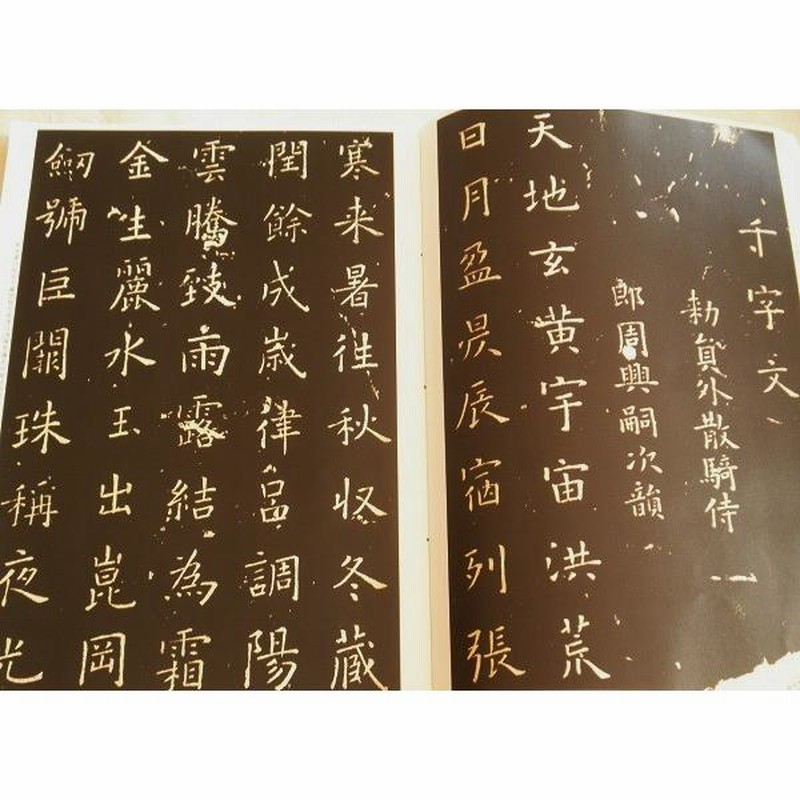 千字文
勅員外散騎侍
郎周興嗣次韻
天地玄黄宇宙洪荒
日月盈昃辰宿列張
寒来暑往秋収冬藏
閏餘成歳律呂調陽
雲騰致雨露結為霜
金生麗水玉出崑岡
劔號巨闕珠稱夜光